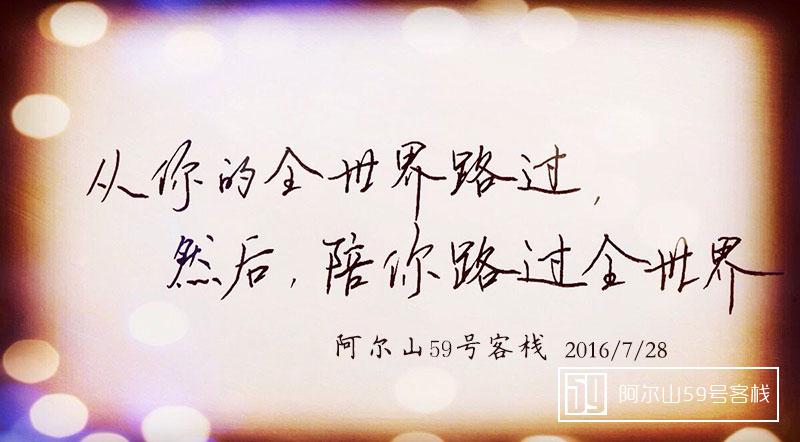 从你的全世界路过，
然后，陪你路过全世界
阿尔山59号客栈 2016/7/28
59 阿尔山59号客栈